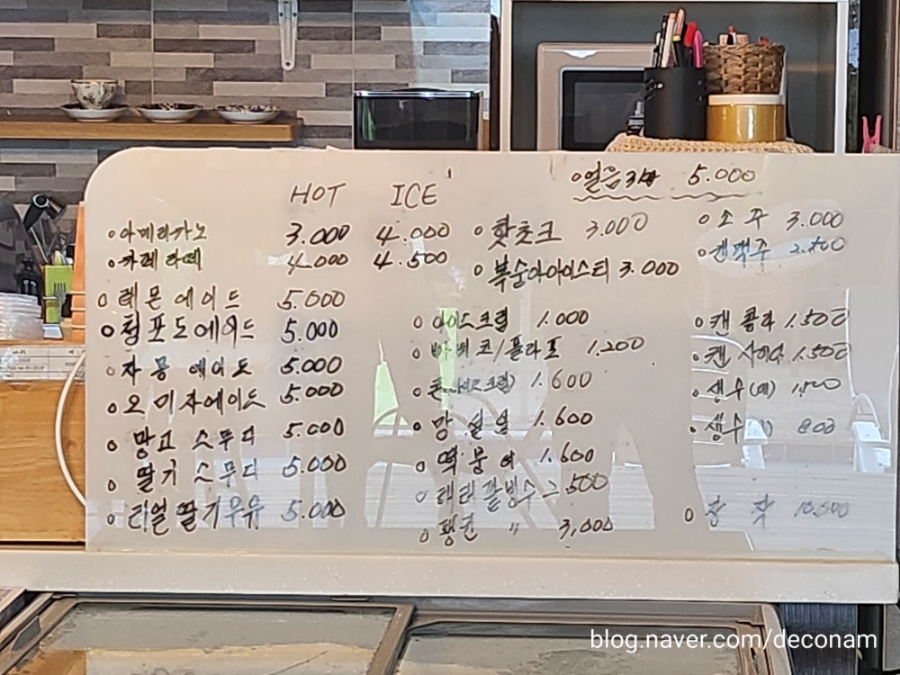 HOT ICE
아메리카노 3.000 4.000
카페라떼 4.000 4.500
레몬에이드 5.000
청포도에이드 5.000
자몽에이드 5.000
오미자에이드 5.000
망고 스무디 5.000
딸기 스무디 5.000
리얼딸기우유 5.000
얼음 5.000
핫쵸크 3.000
복숭아아이스티 3.000
아이스크림 1.000
/폴라포 1.200
콘(아이스크림) 1.600
1.600
떡붕어 1.600
팥빙수 500
" 3,000
소주 3.000
캔맥주
캔콜라 1.500
캔사이다 1.500
생수
생수 800
장작 10.000
blog.naver.com/deconam